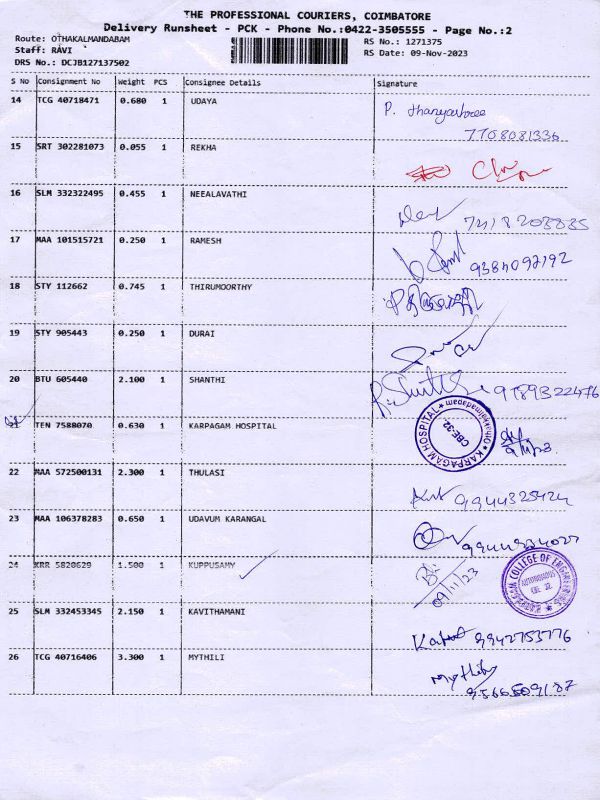 THE PROFESSIONAL COURIERS, COIMBATORE
Delivery Runsheet - PCK - Phone No.:0422-3505555 - Page No.:2
Route: OTHAKALMANDABAM
RS No.: 1271375
Staff: RAVI
RS Date: 09-Nov-2023
DRS No.: DCJB127137502
S No Consignment No Weight PCS Consignee Details Signature
14 TCG 40718471 0.680 1 UDAYA
7708081336
15 SRT 302281073 0.055 1 REKHA
16 SLM 332322495 0.455 1 NEEALAVATHI
7418203835
17 MAA 101515721 0.250 1 RAMESH
9384092192
18 STY 112662 0.745 1 THIRUMOORTHY
19 STY 905443 0.250 1 DURAI
20 BTU 605440 2.100 1 SHANTHI
9789322476
TEN 7588070 0.630 1 KARPAGAM HOSPITAL
KARPAGAM HOSPITAL
CBE-32
9/11/23
22 MAA 572500131 2.300 1 THULASI
9944325424
23 MAA 106378283 0.650 1 UDAVUM KARANGAL
24 KRR 5820629 1.500 1 KUPPUSAMY
09/11/23
COLLEGE OF ENGINEERING
25 SLM 332453345 2.150 1 KAVITHAMANI
9942753776
26 TCG 40716406 3.300 1 MYTHILI
Mythili